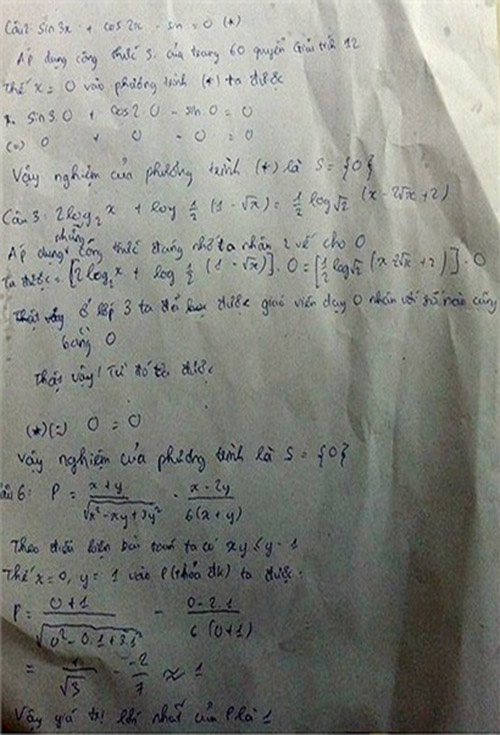 Câu 2: sin 3x + cos 2x - sin = 0 (*)
Áp dụng công thức 3. của trang 60 quyển Giải tích 12
Thế x = 0 vào phương trình (*) ta được
sin 3.0 + cos 2.0 - sin 0 = 0
(=) 0 + 0 - 0 = 0
Vậy nghiệm của phương trình (*) là S = {0}
Câu 3: 2log₂x + log ½ (1 - √x) = ½ log√2 (x - 2√x + 2)
Áp dụng những công thức đáng nhớ ta nhân 2 vế cho 0
Ta được = [2log₂x + log ½ (1 - √x)] . 0 = [½ log√2 (x - 2√x + 2)] . 0
Ở lớp 3 ta đã được giáo viên dạy 0 nhân với số nào cũng
bằng 0
Thật vậy! Từ đó ta được
(*) (=) 0 = 0
Vậy nghiệm của phương trình là S = {0}
Câu 6: P = (x + y)/√(x² - xy + 3y²) - (x - 2y)/(6(x + y))
Theo điều kiện bài toán ta có xy ≤ y - 1
Thế x = 0, y = 1 vào P (thỏa đk) ta được:
P = (0 + 1)/√(0² - 0.1 + 3.1) - (0 - 2.1)/(6(0 + 1))
= 1/√3 - -2/7 ≈ 1
Vậy giá trị lớn nhất của P là 1